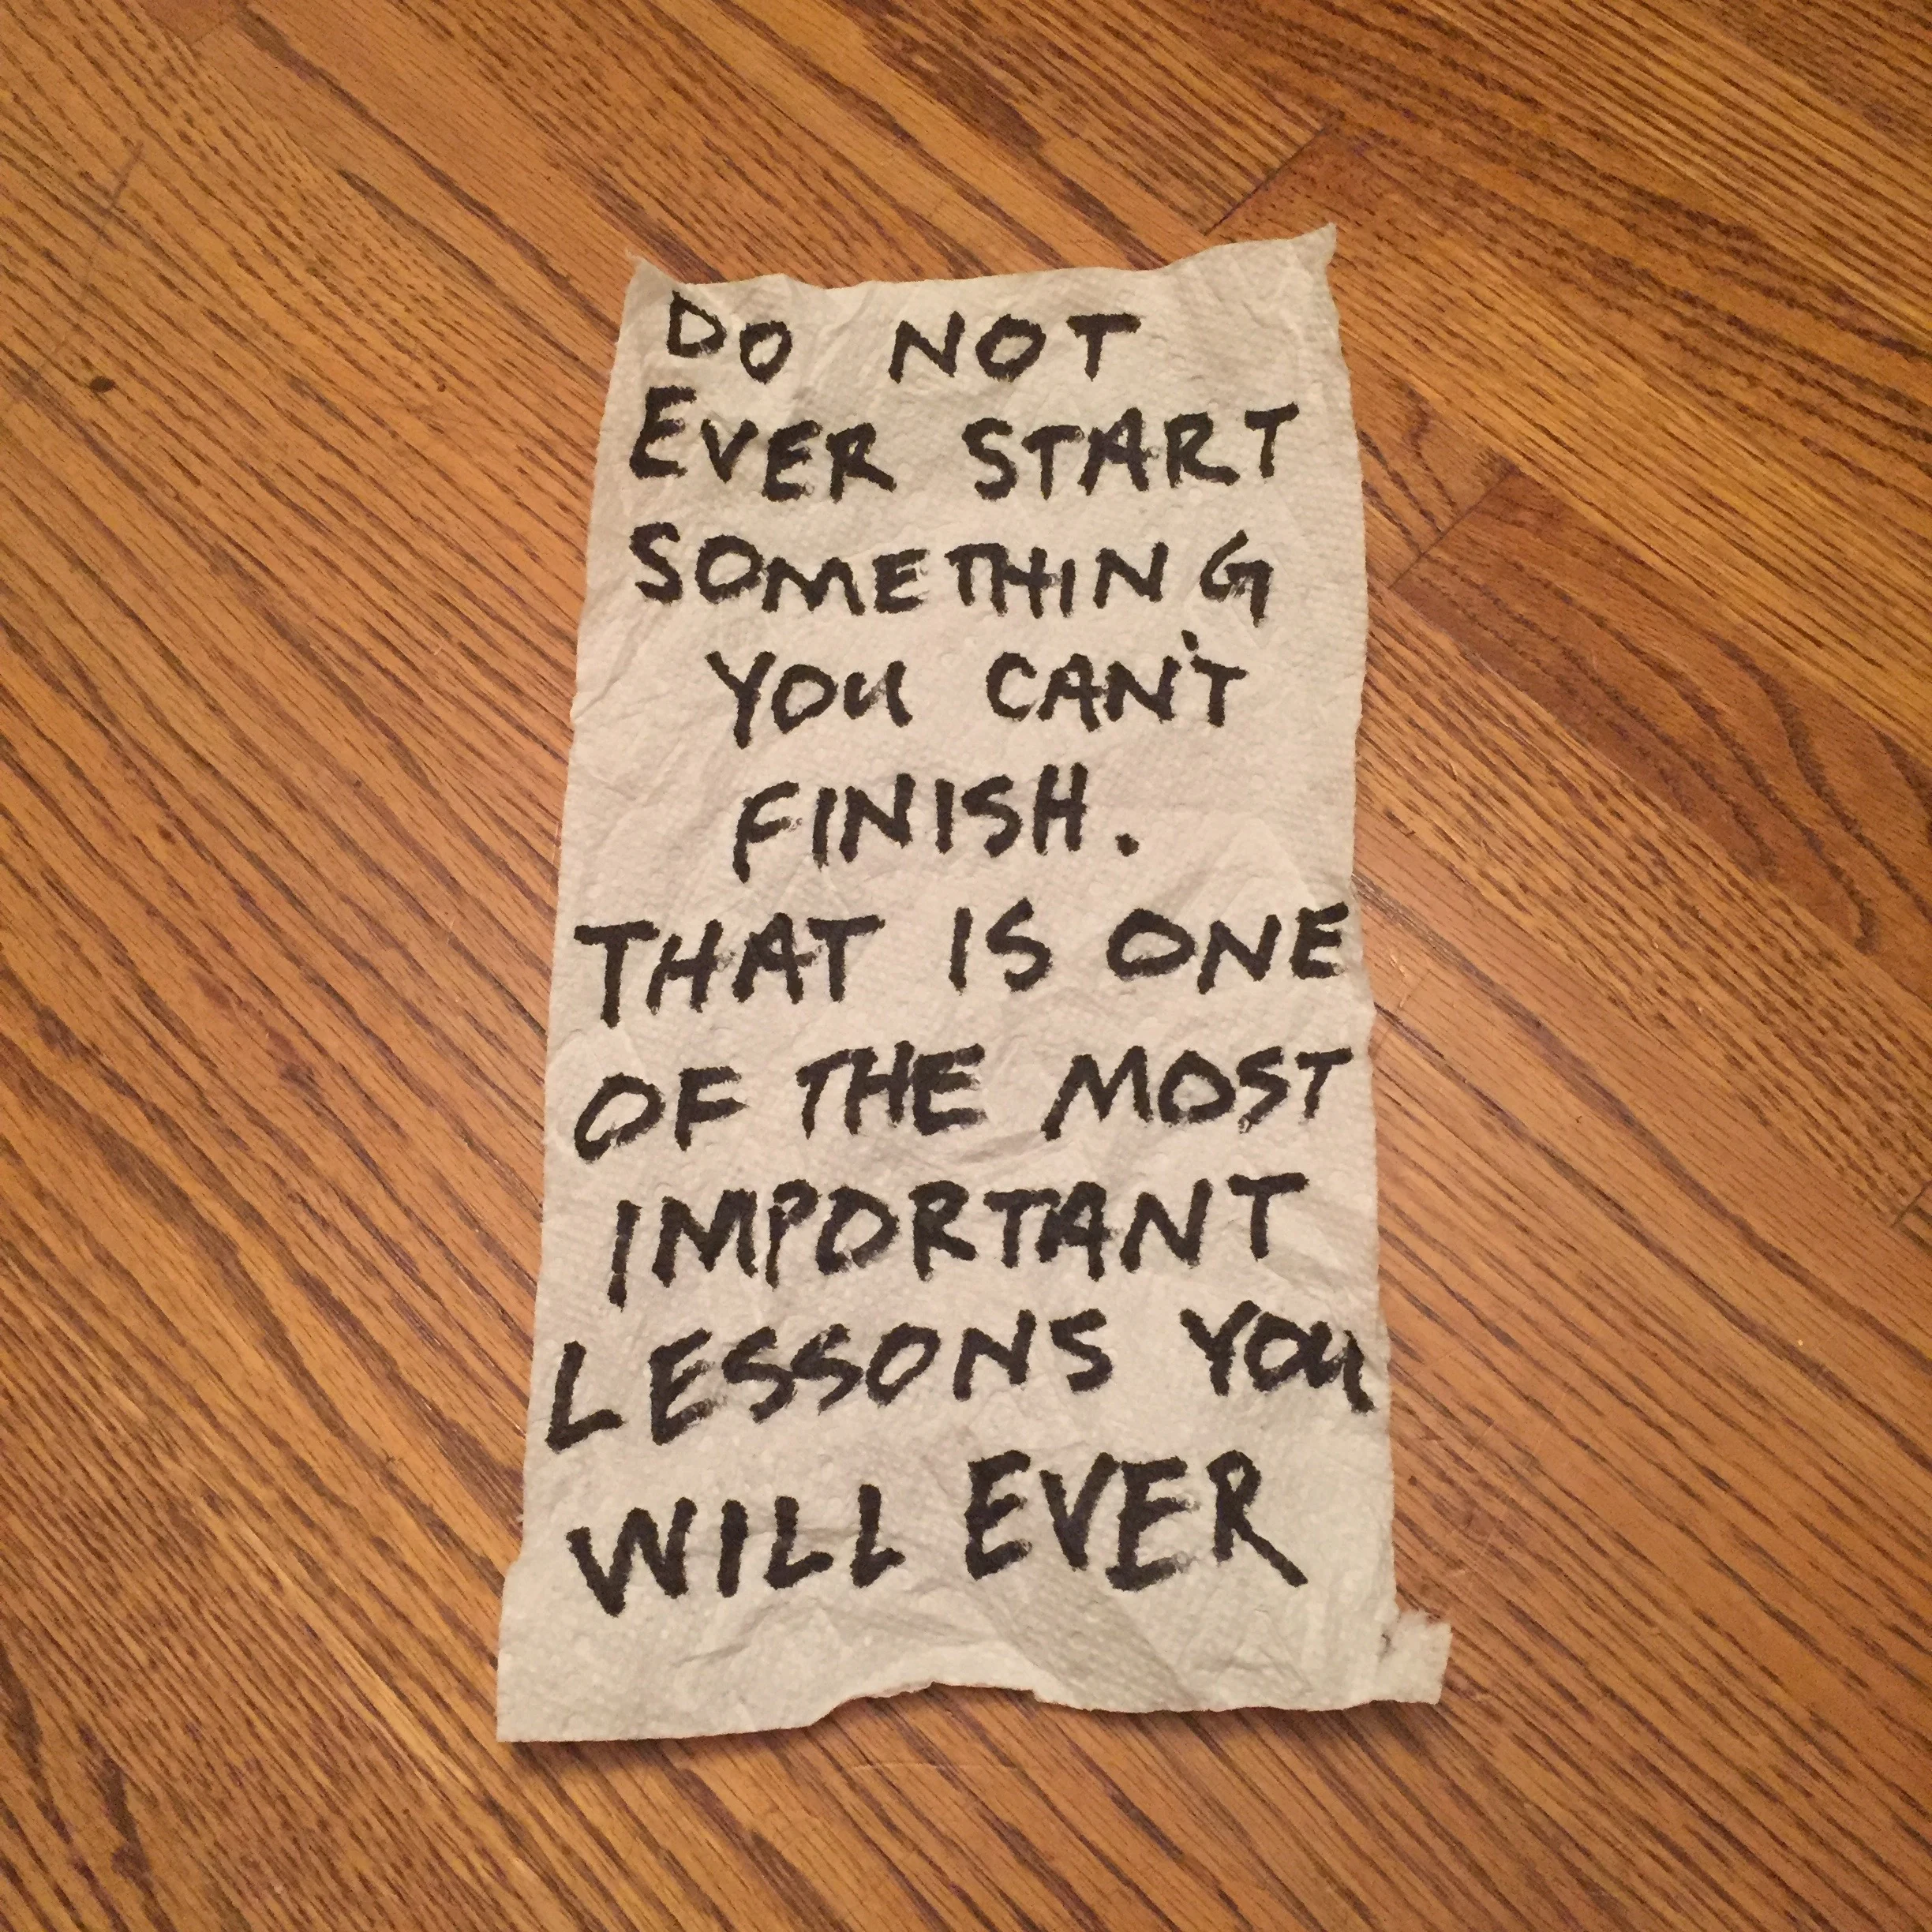 DO NOT
EVER START
SOMETHING
YOU CAN'T
FINISH.
THAT IS ONE
OF THE MOST
IMPORTANT
LESSONS YOU
WILL EVER